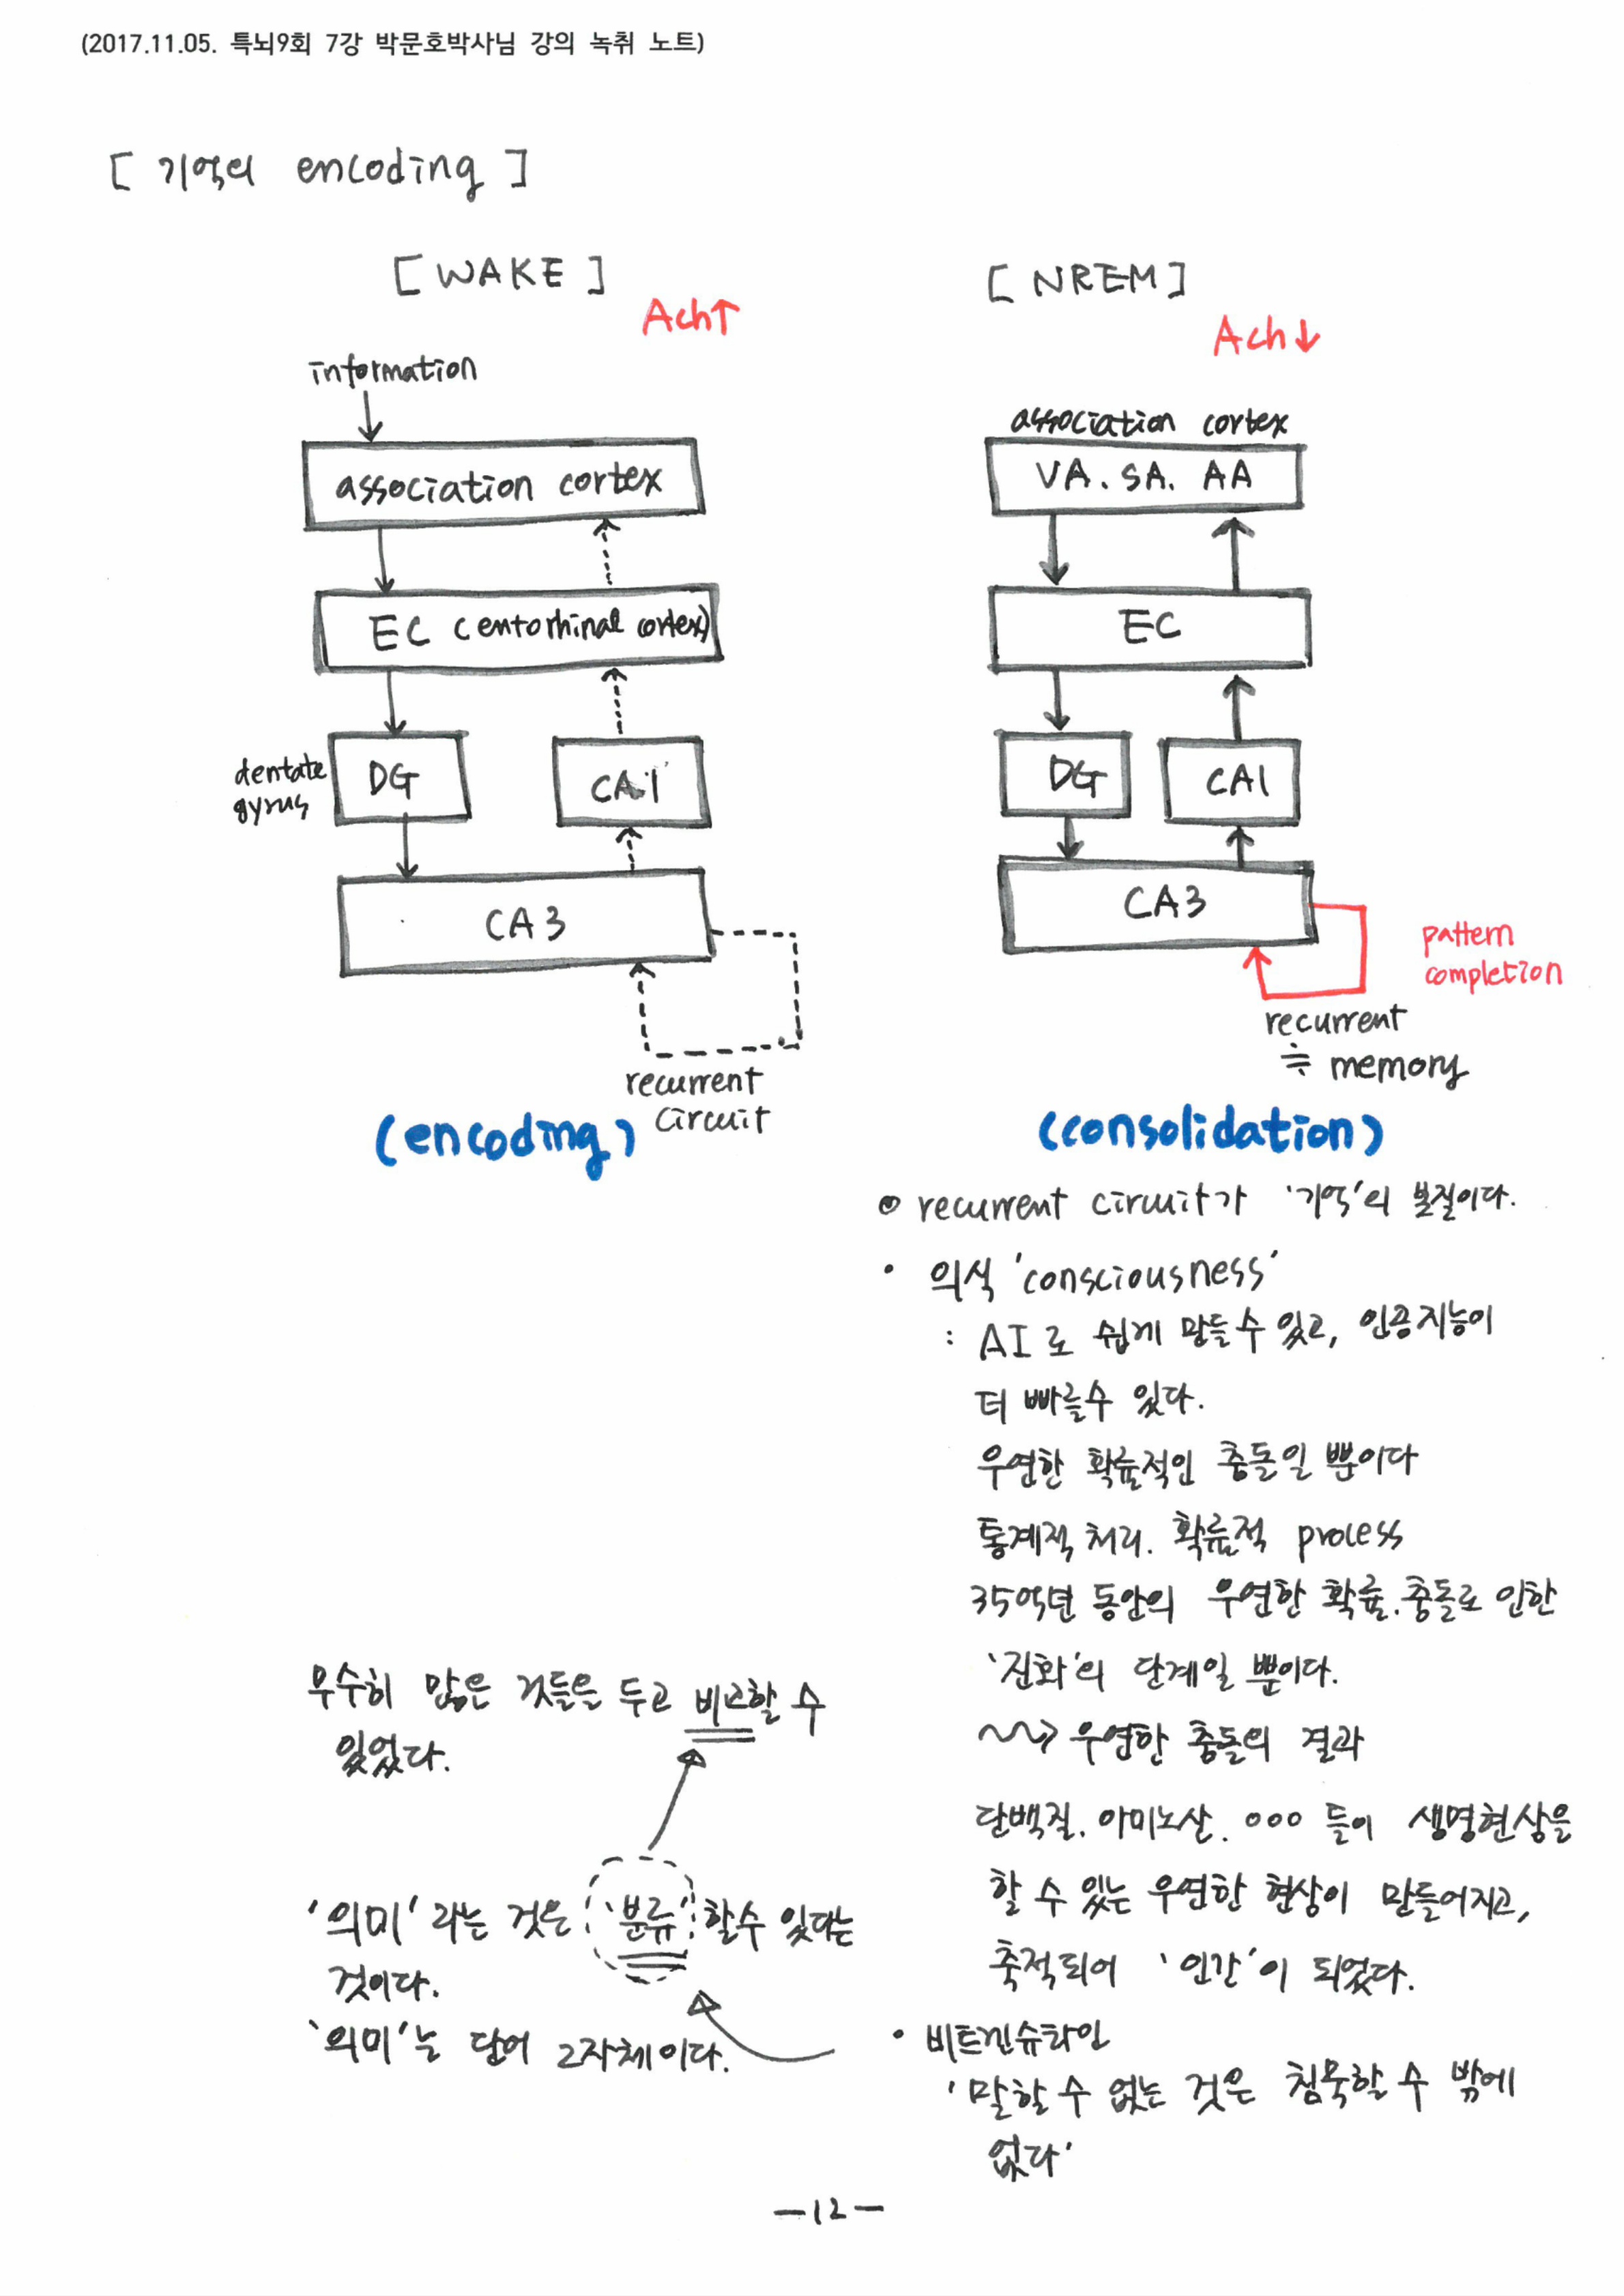 (2017.11.05. 특뇌9회 7강 박문호박사님 강의 녹취 노트)
[ 기억의 encoding ]
[ WAKE ]
Ach↑
information
association cortex
EC (entorhinal cortex)
dentate
gyrus
DG
CA1
CA3
recurrent
circuit
(encoding)
[ NREM ]
Ach↓
association cortex
VA. SA. AA
EC
DG
CA1
CA3
pattern
completion
recurrent
≒ memory
(consolidation)
⊙ recurrent circuit가 '기억'의 본질이다.
• 의식 'consciousness'
: AI로 쉽게 만들수 있고, 인공지능이
더 빠를수 있다.
우연한 확률적인 충돌일 뿐이다
통계적 처리. 확률적 process
35억년 동안의 우연한 확률.충돌로 인한
'진화'의 단계일 뿐이다.
~~> 우연한 충돌의 결과
단백질. 아미노산. ooo 들이 생명현상을
할 수 있는 우연한 현상이 만들어지고,
축적되어 '인간'이 되었다.
• 비트겐슈타인
'말할 수 없는 것은 침묵할 수 밖에
없다'
무수히 많은 것들을 두고 비교할 수
있었다.
'의미'라는 것은 '분류'할수 있다는
것이다.
'의미'는 단어 그자체이다.
-12-